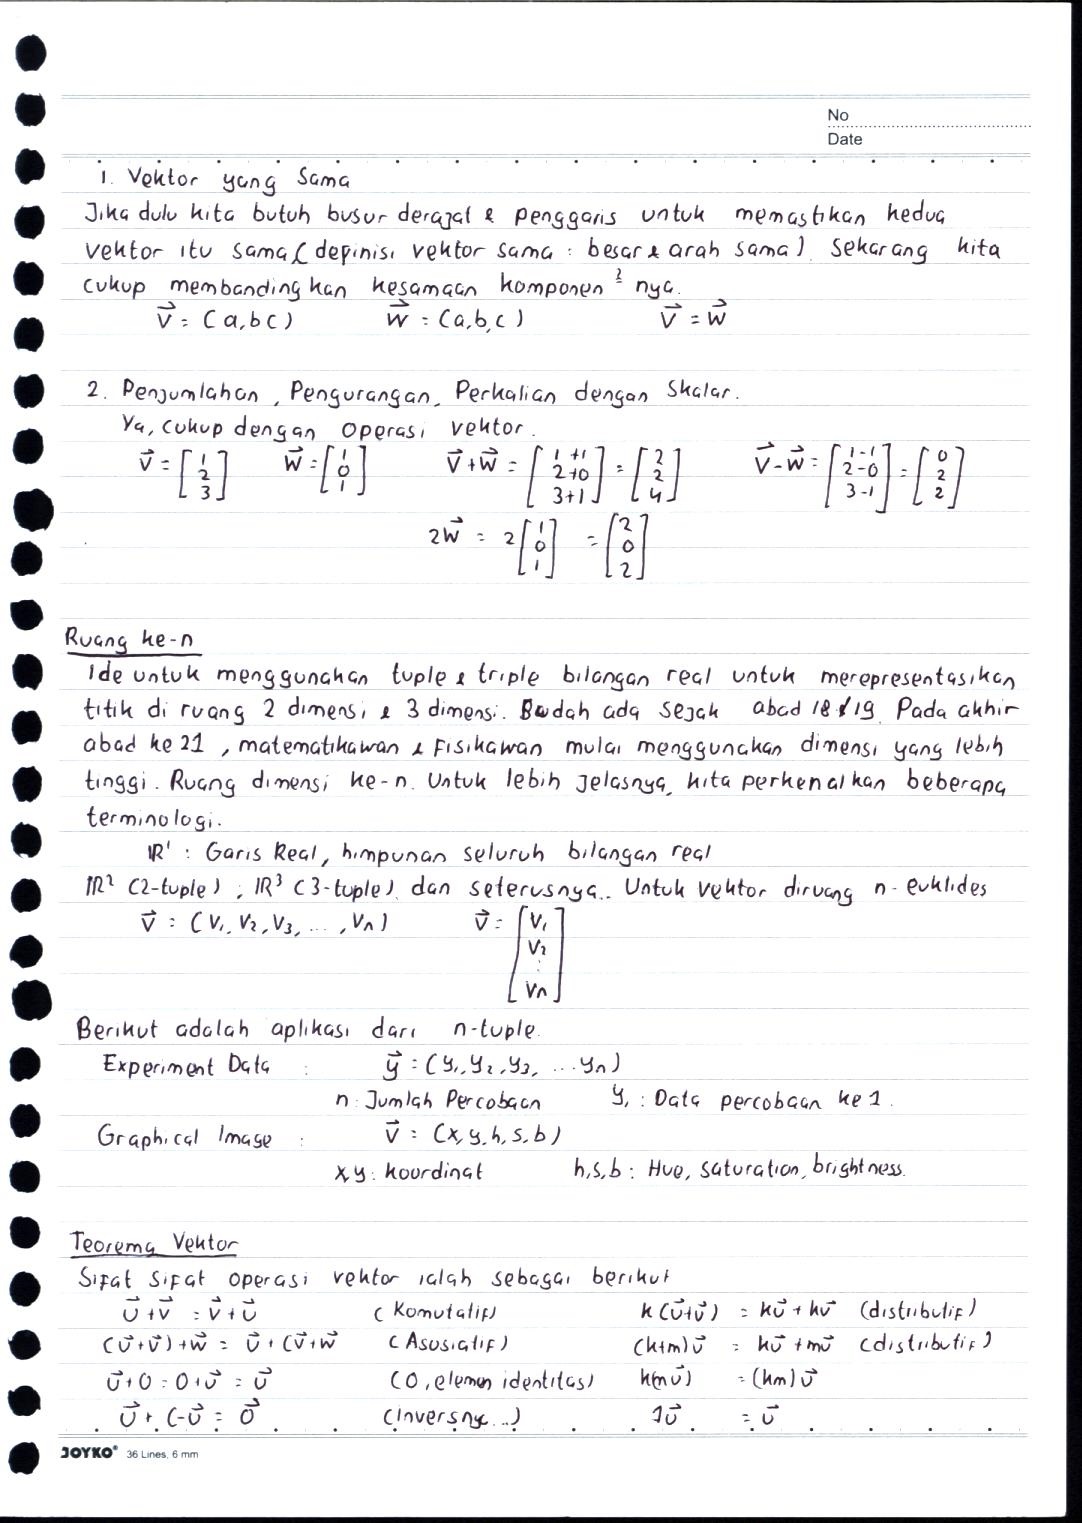 No
Date
1. Vektor yang Sama
Jika dulu kita butuh busur derajat & penggaris untuk memastikan kedua
vektor itu sama (definisi vektor sama : besar & arah sama). Sekarang kita
cukup membandingkan kesamaan komponen² nya.
v⃗ = (a,b c) w⃗ = (a,b,c) v⃗ = w⃗
2. Penjumlahan, Pengurangan, Perkalian dengan Skalar.
Ya, cukup dengan operasi vektor.
v⃗ = [1 2 3] w⃗ = [1 0 1] v⃗+w⃗ = [1+1 2+0 3+1] = [2 2 4] v⃗-w⃗ = [1-1 2-0 3-1] = [0 2 2]
2w⃗ = 2 [1 0 1] = [2 0 2]
Ruang ke-n
Ide untuk menggunakan tuple & triple bilangan real untuk merepresentasikan
titik di ruang 2 dimensi & 3 dimensi. Sudah ada sejak abad 18/19. Pada akhir
abad ke 21, matematikawan & Fisikawan mulai menggunakan dimensi yang lebih
tinggi. Ruang dimensi ke-n. Untuk lebih jelasnya, kita perkenalkan beberapa
terminologi.
ℝ¹ : Garis Real, himpunan seluruh bilangan real
ℝ² (2-tuple) ; ℝ³ (3-tuple), dan seterusnya.. Untuk vektor diruang n-euklides
v⃗ = (v₁, v₂, v₃, ... , vₙ) v⃗ = [v₁ v₂ ⋮ vₙ]
Berikut adalah aplikasi dari n-tuple.
Experiment Data : y⃗ = (y₁, y₂, y₃, ... yₙ)
n : Jumlah Percobaan y₁ : Data percobaan ke 1.
Graphical Image : v⃗ = (x, y, h, s, b)
x, y : koordinat h,s,b : Hue, saturation, brightness.
Teorema Vektor
Sifat sifat operasi vektor ialah sebagai berikut
u⃗+v⃗ = v⃗+u⃗ (Komutatif) k(u⃗+v⃗) = ku⃗ + kv⃗ (distributif)
(u⃗+v⃗)+w⃗ = u⃗+(v⃗+w⃗ (Asosiatif) (k+m)u⃗ = ku⃗ + mu⃗ (distributif)
u⃗+0 = 0+u⃗ = u⃗ (0, elemen identitas) k(mu⃗) = (km)u⃗
u⃗ + (-u⃗ = 0⃗ (Inversny...) 1u⃗ = u⃗
JOYKO® 36 Lines, 6 mm